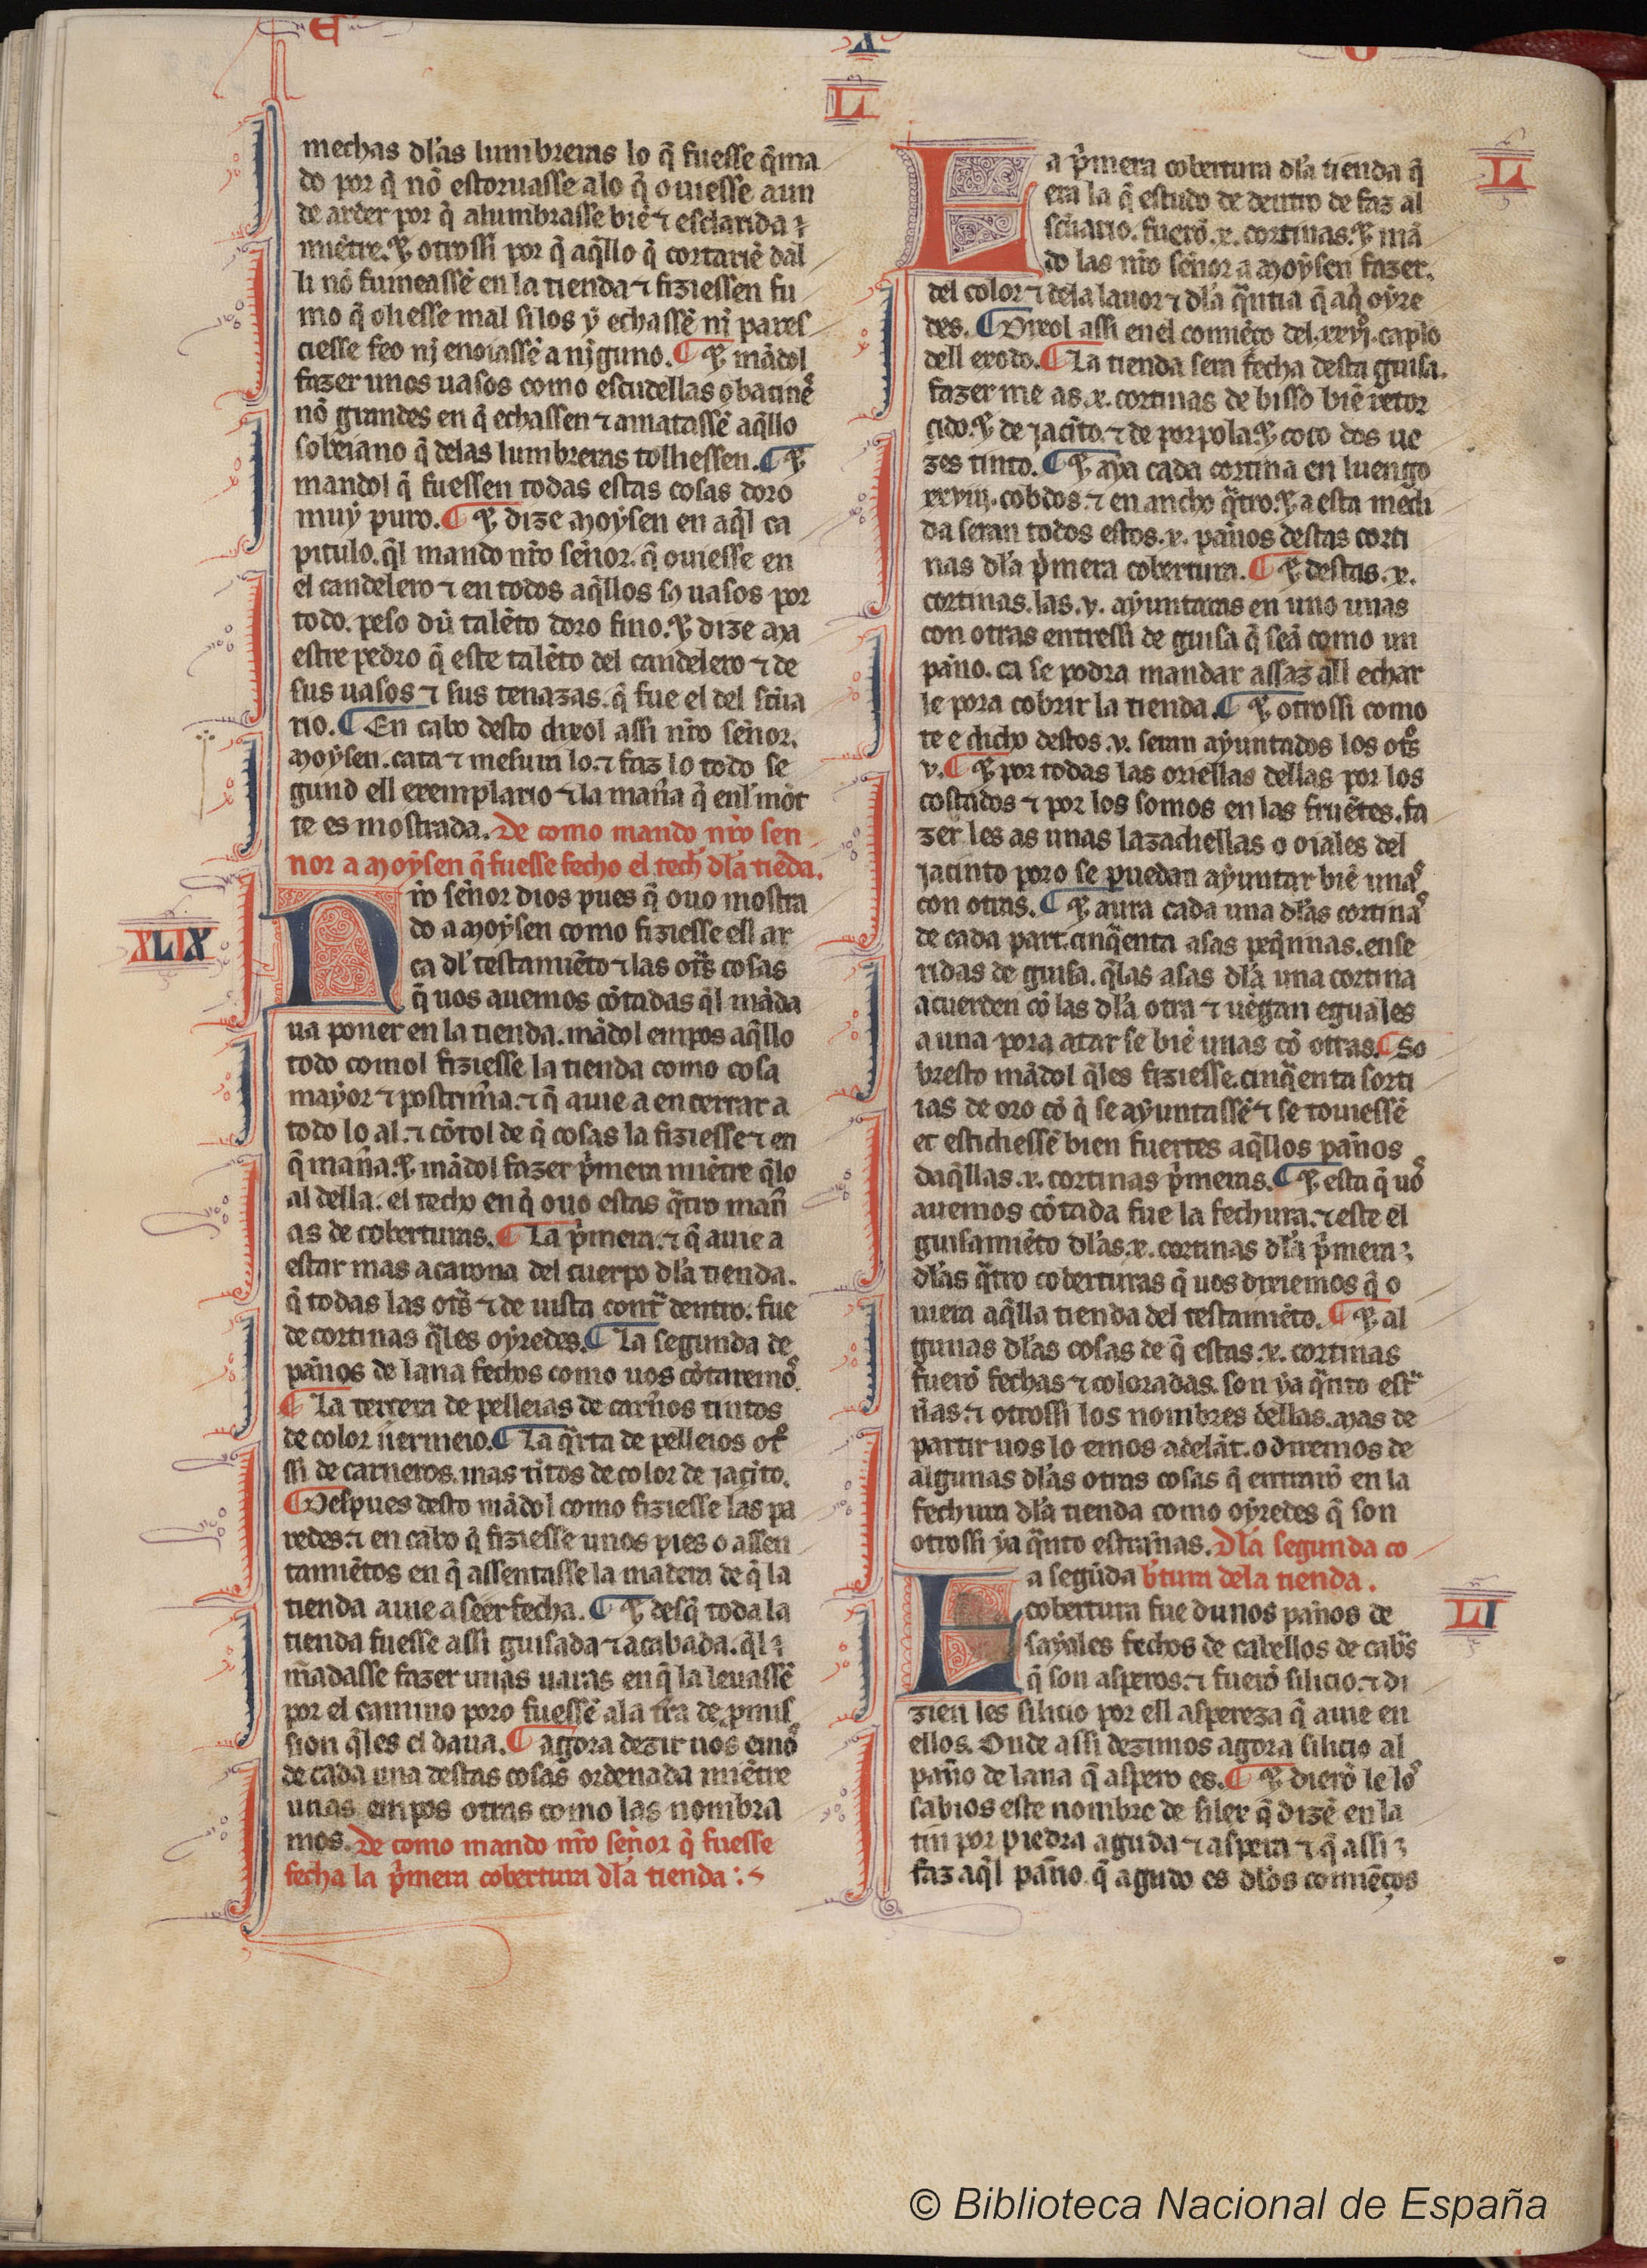 E
X
O
LI
mechas dl'as lumbreras lo q̃ fuesse q̃ma
do por q̃ nõ estoruasse alo q̃ ouiesse aun
de arder por q̃ alumbrasse biẽ ⁊ esclarida
miẽtre. ⁊ otrossi por q̃ aq̃llo q̃ cortariẽ dal
li nõ fumeassẽ en la tienda ⁊ fiziessen fu
mo q̃ oliesse mal si los ẏ echassẽ nj pares
ciesse feo nj enoiassẽ a njguno. ¶ ⁊ mãdol
fazer unos uasos como escudellas o bacines
nõ grandes en q̃ echassen ⁊ amatassẽ aq̃llo
sobeiano q̃ delas lumbreras tolliessen. ¶ ⁊
mandol q̃ fuessen todas estas cosas doro
muẏ puro. ¶ ⁊ dize moẏsen en aq̃l ca
pitulo. q̃l mando nr̃o sẽnor. q̃ ouiesse en
el candelero ⁊ en todos aq̃llos so uasos por
todo. peso dũ talẽto doro fino. ⁊ dize ma
estre pedro q̃ este talẽto del candelero ⁊ de
sus uasos ⁊ sus tenazas. q̃ fue el del sc̃ua
rio. ¶ En cabo desto dixol assi nr̃o sẽnor.
moẏsen. cata ⁊ mesura lo. ⁊ faz lo todo se
gund ell exemplario ⁊ la mañ̃a q̃ enl' mõt
te es mostrada. De como mando nr̃o sen
nor a moẏsen q̃ fuesse fecho el tech̃ dl'a tiẽda.
XLIX
Nr̃o sẽnor dios pues q̃ ouo mostra
do a moẏsen como fiziesse ell ar
ca dl' testamẽto ⁊ las otr̃s cosas
q̃ uos auemos cõtadas q̃l mãda
ua poner en la tienda. mãdol empos aq̃llo
todo comol fiziesse la tienda como cosa
maẏor ⁊ postrim̃a. ⁊ q̃ auie a encerrar a
todo lo al. ⁊ cõtol de q̃ cosas la fiziesse ⁊ en
q̃ mañ̃a. ⁊ mãdol fazer p̃mera miẽtre q̃lo
al della. el techo en q̃ ouo estas q̃tro mañ
as de coberturas. ¶ La p̃mera. ⁊ q̃ auie a
estar mas acarona del cuerpo dl'a tienda.
q̃ todas las otr̃s ⁊ de uista contr̃ dentro. fue
de cortinas q̃les oẏredes. ¶ La segunda de
pãnos de lana fechos como uos cõtaremos.
¶ La tercera de pelleias de carñ̃os tintos
de color ũermeio. ¶ La q̃rta de pelleios otr̃o
ssi de carneros. mas titos de color de jaçito.
¶ Despues desto mãdol como fiziesse las pa
redes. ⁊ en cabo q̃ fiziesse unos pies o assen
tamiẽtos en q̃ assentasse la madera de q̃ la
tienda auie a seer fecha. ¶ ⁊ desq̃ toda la
tienda fuesse assi guisada ⁊ acabada. q̃l
m̃adasse fazer unas uaras en q̃ la leuassẽ
por el camino poro fuessẽ ala tr̃a de p̃mis
sion q̃les el daua. ¶ agora dezir uos emos
de cada una destas cosas ordenada miẽtre
unas empos otras como las nombra
mos. De como mando nr̃o sẽnor q̃ fuesse
fecha la p̃mera cobertura dl'a tienda:
L
La p̃mera cobertura dl'a tienda q̃
era la q̃ estudo de dentro de faz al
sc̃uario. fuerõ .x. cortinas. ⁊ mã
do las nr̃o sẽnor a moẏsen fazer.
del color ⁊ dela lauor ⁊ dl'a q̃ntia q̃ aq̃ oẏre
des. ¶ Dixol assi en el comiẽço del .xxvj. caplo
dell exodo. ¶ La tienda sera fecha desta guisa.
fazer me as .x. cortinas de bisso biẽ retor
cido. ⁊ de jacĩto. ⁊ de porpola. ⁊ coco dos ue
zes tinto. ¶ ⁊ aẏa cada cortina en luengo
xxviij. cobdos. ⁊ en ancho q̃tro. ⁊ a esta medi
da seran todos estos .x. pãnos destas corti
nas dl'a p̃mera cobertura. ¶ ⁊ destas .x.
cortinas. las .v. aẏuntaras en uno unas
con otras entressi de guisa q̃ seã como un
pãno. ca se podra mandar assaz all echar
le pora cobrir la tienda. ¶ ⁊ otrossi como
te e dicho destos .v. seran aẏuntados los otr̃s
v. ¶ ⁊ por todas las oriellas dellas por los
costados ⁊ por los somos en las fruẽtes. fa
zer les as unas lazadiellas o oiales del
jacinto poro se puedan aẏuntar biẽ unas
con otras. ¶ ⁊ aura cada una dl'as cortinas
de cada part. cinq̃enta asas peq̃nnas. enxe
ridas de guisa. q̃las asas dl'a una cortina
acuerden cõ las dl'a otra ⁊ uẽgan eguales
a una pora atar se biẽ unas cõ otras. ¶ So
bresto mãdol q̃les fiziesse. cinq̃enta sorti
ias de oro cõ q̃ se aẏuntassẽ ⁊ se touiessẽ
et estidiessẽ bien fuertes aq̃llos pãnos
daq̃llas .x. cortinas p̃meras. ¶ ⁊ esta q̃ uos
auemos cõtada fue la fechura. ⁊ este el
guisamiẽto dl'as .x. cortinas dl'a p̃mera
dl'as q̃tro coberturas q̃ uos dixiemos q̃ o
uiera aq̃lla tienda del testamiẽto. ¶ ⁊ al
gunas dl'as cosas de q̃ estas .x. cortinas
fuerõ fechas ⁊ coloradas. son ẏa q̃nto estr̃
ñas. ⁊ otrossi los nombres dellas. mas de
partir uos lo emos adelãt. o diremos de
algunas dl'as otras cosas q̃ entrarõ en la
fechura dl'a tienda como oẏredes q̃ son
otrossi ẏa q̃nto estrañas. Dl'a segunda co
bt̃ura dela tienda.
LI
La segũda
cobertura fue dunos pãnos de
saẏales fechos de cabellos de cabr̃s
q̃ son asperos. ⁊ fuerõ silicio. ⁊ di
zien les silicio por ell aspereza q̃ auie en
ellos. Onde assi dezimos agora silicio al
pãno de lana q̃ aspero es. ¶ ⁊ dierõ le los
sabios este nombre de silex q̃ dizẽ en la
tin por piedra aguda ⁊ aspera ⁊ q̃ assi
faz aq̃l pãno. q̃ agudo es dl'os comiẽços
© Biblioteca Nacional de España